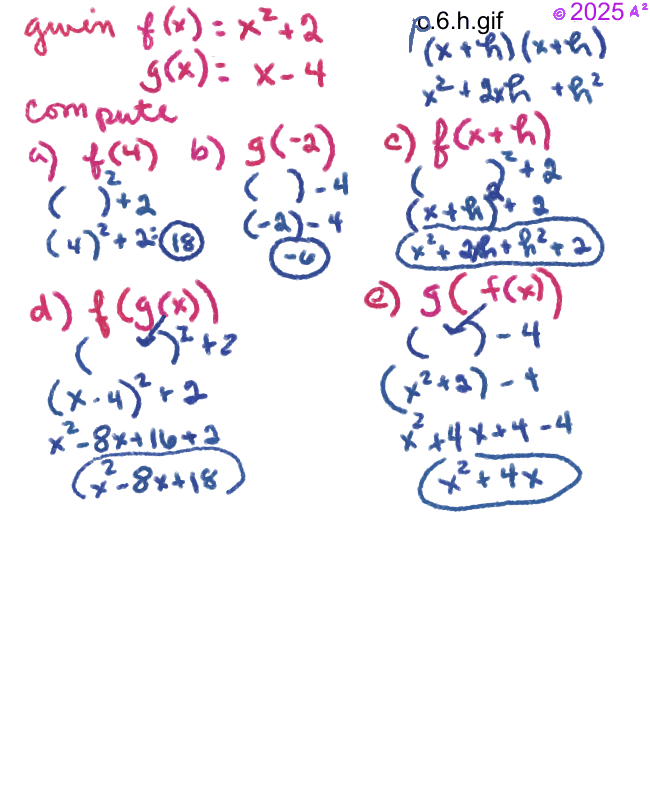 given f(x) = x² + 2
g(x) = x - 4
p.6.h.gif
© 2025 A²
(x + h)(x + h)
x² + 2xh + h²
compute
a) f(4)
( )² + 2
(4)² + 2 = 18
b) g(-2)
( ) - 4
(-2) - 4
-6
c) f(x + h)
( )² + 2
(x + h)² + 2
x² + 2xh + h² + 2
d) f(g(x))
( ✓)² + 2
(x - 4)² + 2
x² - 8x + 16 + 2
x² - 8x + 18
e) g(f(x))
( ✓) - 4
(x² + 2) - 4
x² + 4x + 4 - 4
x² + 4x